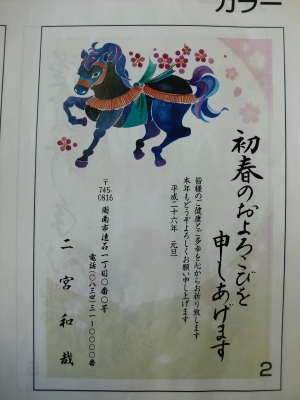 カラー
初春のおよろこびを
申しあげます
皆様のご健康とご多幸を心からお祈り致します
本年もどうぞよろしくお願い申し上げます
平成二十六年 元旦
〒
745-
0816
周南市遠石一丁目〇番〇号
電話(〇八三四)三一-〇〇〇〇番
二宮和哉
2